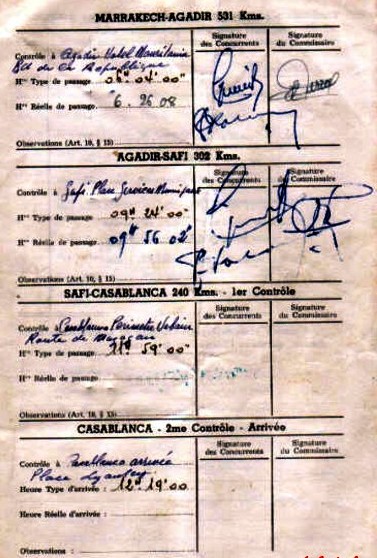 MARRAKECH-AGADIR 531 Kms.
Signature des Concurrents
Signature du Commissaire
Contrôle à Agadir Hotel Mauritania
Bd de la République
Hre Type de passage 06H 04' 00"
Hre Réelle de passage 6. 26 08
Observations (Art. 10, § 15)
AGADIR-SAFI 302 Kms.
Signature des Concurrents
Signature du Commissaire
Contrôle à Safi Place Services Municipaux
Hre Type de passage 09H 24' 00"
Hre Réelle de passage 09H 56 02"
Observations (Art. 10, § 15)
SAFI-CASABLANCA 240 Kms. - 1er Contrôle
Signature des Concurrents
Signature du Commissaire
Contrôle à Casablanca Périmètre Urbain
Route de Mazagan
Hre Type de passage 11H 59' 00"
Hre Réelle de passage
Observations (Art. 10, § 15)
CASABLANCA - 2me Contrôle - Arrivée
Signature des Concurrents
Signature du Commissaire
Contrôle à Casablanca arrivée
Place Lyautey
Heure Type d'arrivée : 12H 19' 00
Heure Réelle d'arrivée :
Observations :